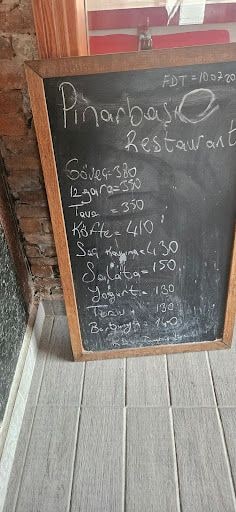 FDT=10.07.20
Pınarbaşı
Restaurant
Güveç-380
Izgara=350
Tava =350
Köfte=410
Saç Kavurma=430
Salata=150
Yogurt=130
130
140